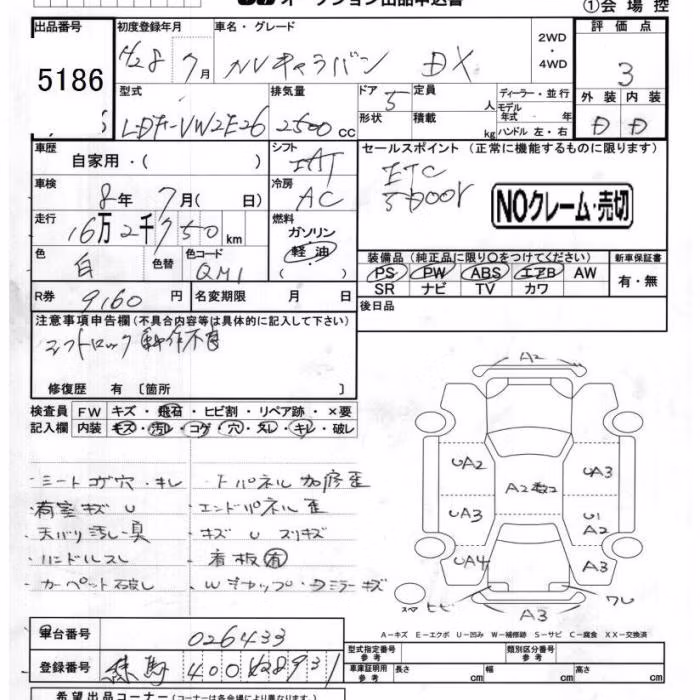 オークション出品申込書
①会場控
出品番号
初度登録年月
車名・グレード
2WD
・
4WD
評価点
5186
H28年 7月
NVキャラバン
DX
3
型式
排気量
ドア
定員
ディーラー・並行
モデル
年式 年
外装 内装
LDF-VW2E26
2500 cc
5
人
形状
積載
kg
ハンドル 左・右
D D
車歴
自家用・( )
シフト
セールスポイント (正常に機能するものに限ります)
ETC
5DOOR
NOクレーム・売切
車検
8年 7月( 日)
冷房
AC
走行
16万2千750 km
燃料
ガソリン
軽油
装備品 (純正品に限り○をつけてください)
新車保証書
色
白
色替
色コード
QM1
PS PW ABS エアB AW
SR ナビ TV カワ
有・無
R券
9160 円
名変期限 月 日
後日品
注意事項申告欄 (不具合内容等は具体的に記入して下さい)
シフトロック動作不良
修復歴 有 〔箇所 〕
検査員 FW キズ・飛石・ヒビ割・リペア跡・×要
記入欄 内装 キズ・汚レ・コゲ・穴・スレ・キレ・破レ
・シートコゲ穴・キレ
・荷室キズU
・天バリ汚レ・臭
・ハンドルスレ
・カーペット破レ
・エンドパネル歪
・キズ U スリキズ
・看板有
A2
UA2
UA3
A2数コ
UA3
U1
A2
UA4
A3
スペア ヒビ
A3
ワレ
A-キズ E-エクボ U-凹み W-補修跡 S-サビ C-腐食 XX-交換済
車台番号
026433
登録番号
練馬 400
型式指定番号
参考
類別区分番号
参考
車庫証明用
参考
長さ cm
幅 cm
高さ cm
希望出品コーナー (コーナーは各会場により異なります)